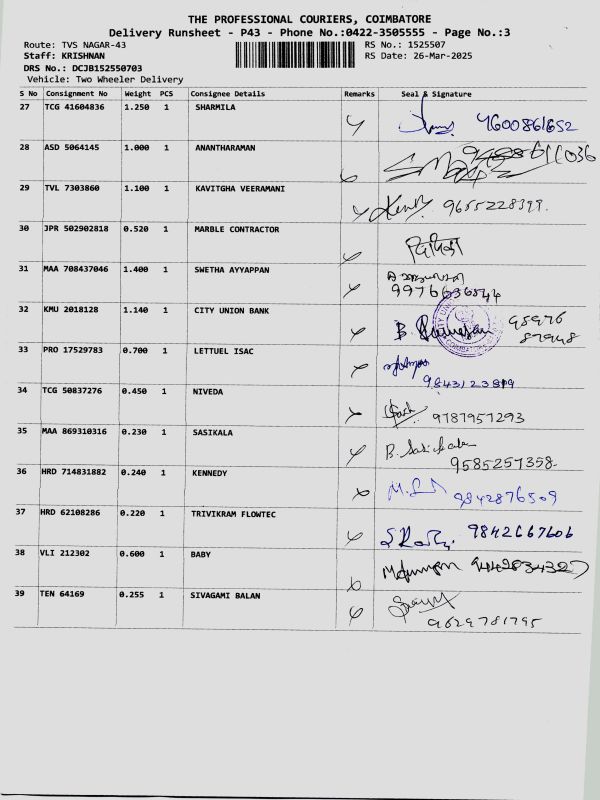 THE PROFESSIONAL COURIERS, COIMBATORE
Delivery Runsheet - P43 - Phone No.:0422-3505555 - Page No.:3
Route: TVS NAGAR-43 RS No.: 1525507
Staff: KRISHNAN RS Date: 26-Mar-2025
DRS No.: DCJB152550703
Vehicle: Two Wheeler Delivery
S No Consignment No Weight PCS Consignee Details Remarks Seal & Signature
27 TCG 41604836 1.250 1 SHARMILA
28 ASD 5064145 1.000 1 ANANTHARAMAN
29 TVL 7303860 1.100 1 KAVITGHA VEERAMANI 9655228399.
30 JPR 502902818 0.520 1 MARBLE CONTRACTOR
31 MAA 708437046 1.400 1 SWETHA AYYAPPAN
32 KMU 2018128 1.140 1 CITY UNION BANK
33 PRO 17529783 0.700 1 LETTUEL ISAC
34 TCG 50837276 0.450 1 NIVEDA 9787957293
35 MAA 869310316 0.230 1 SASIKALA
9585257358
36 HRD 714831882 0.240 1 KENNEDY 9842876509
37 HRD 62108286 0.220 1 TRIVIKRAM FLOWTEC 9842667606
38 VLI 212302 0.600 1 BABY
39 TEN 64169 0.255 1 SIVAGAMI BALAN
9629781795